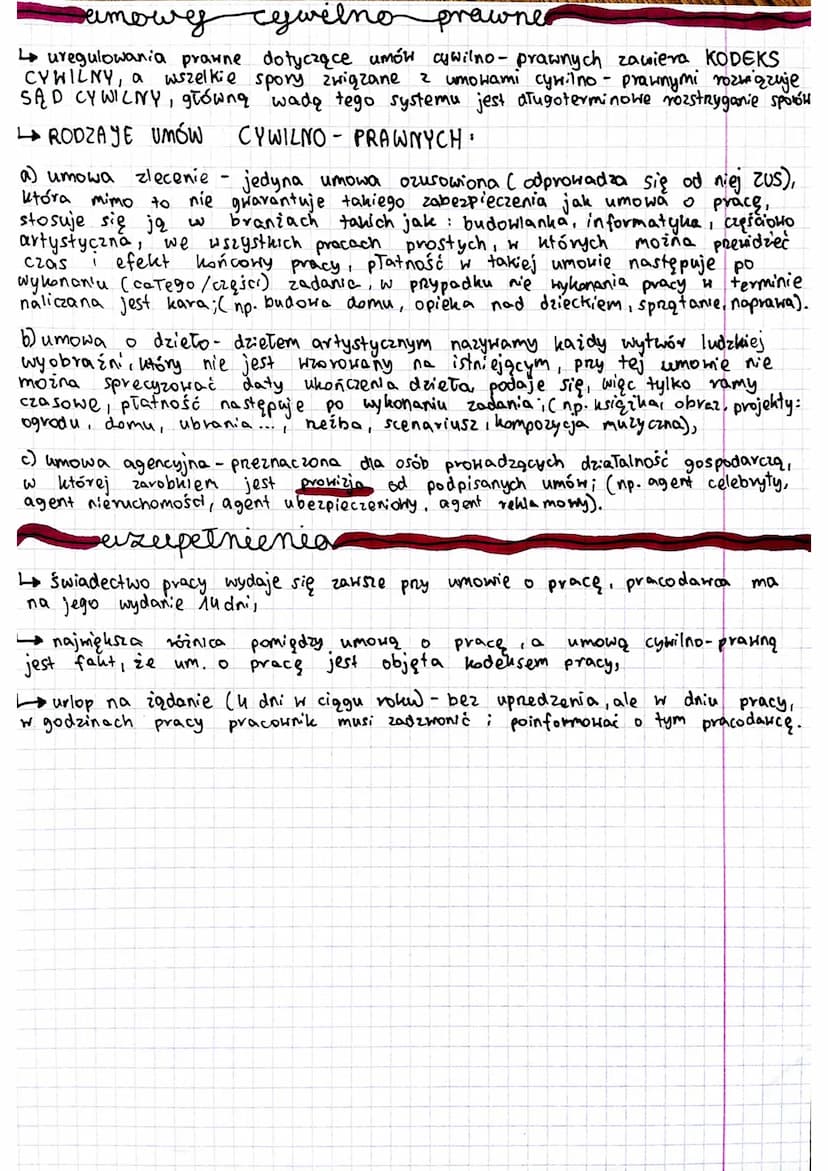 umowy cywilno prawne
↳ uregulowania prawne dotyczące umów cywilno-prawnych zawiera KODEKS
CYWILNY, a wszelkie spory związane z umowami cywilno-prawnymi rozwiązuje
SĄD CYWILNY, główną wadą tego systemu jest długoterminowe rozstrzyganie sporów
↳ RODZAJE UMÓW CYWILNO-PRAWNYCH:
a) umowa zlecenie - jedyna umowa ozusowiona (odprowadza się od niej ZUS),
która mimo to nie gwarantuje takiego zabezpieczenia jak umowa o pracę,
stosuje się ją w branżach takich jak: budowlanka, informatyka, częściowo
artystyczna, we wszystkich pracach prostych, w których można przewidzieć
czas i efekt końcowy pracy, płatność w takiej umowie następuje po
wykonaniu (całego/części) zadania, w przypadku nie wykonania pracy w terminie
naliczana jest kara; (np. budowa domu, opieka nad dzieckiem, sprzątanie, naprawa).
b) umowa o dzieło - dziełem artystycznym nazywamy każdy wytwór ludzkiej
wyobraźni, który nie jest wzorowany na istniejącym, przy tej umowie nie
można sprecyzować daty ukończenia dzieła, podaje się, więc tylko ramy
czasowe, płatność następuje po wykonaniu zadania; (np. książka, obraz, projekty:
ogrodu, domu, ubrania..., rzeźba, scenariusz, kompozycja muzyczna),
c) umowa agencyjna - przeznaczona dla osób prowadzących działalność gospodarczą,
w której zarobkiem jest prowizja od podpisanych umów; (np. agent celebryty,
agent nieruchomości, agent ubezpieczeniowy, agent reklamowy).
uzupełnienia
↳ świadectwo pracy wydaje się zawsze przy umowie o pracę, pracodawca ma
na jego wydanie 14 dni,
↳ największa różnica pomiędzy umową o pracę, a umową cywilno-prawną
jest fakt, że um. o pracę jest objęta kodeksem pracy,
↳ urlop na żądanie (4 dni w ciągu roku) - bez uprzedzenia, ale w dniu pracy,
w godzinach pracy pracownik musi zadzwonić i poinformować o tym pracodawcę.